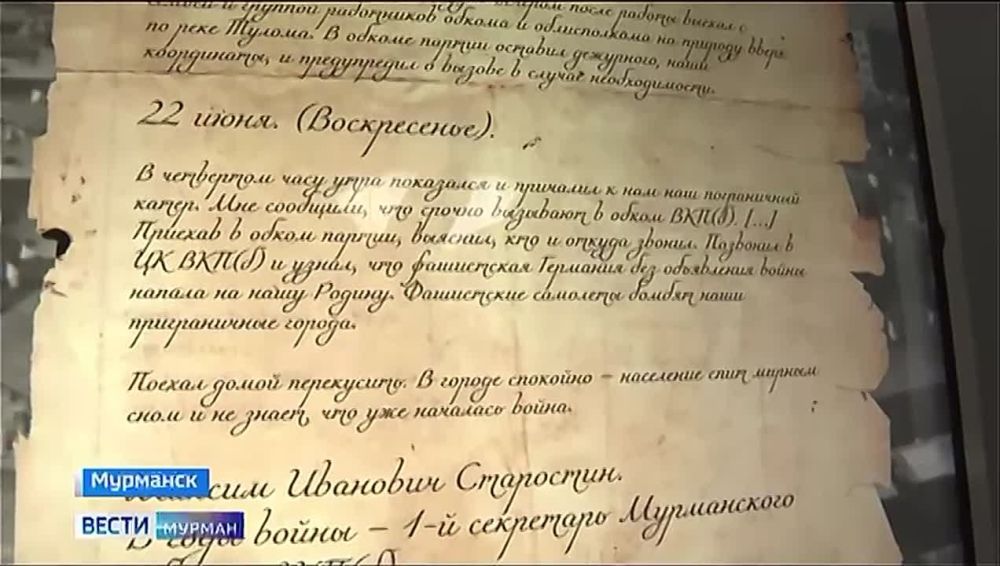 и группой работников обкома и облисполкома на природу вверх
по реке Тулома. В обкоме партии оставил дежурного, наши
координаты, и предупредил о вызове в случае необходимости.
22 июня. (Воскресенье).
В четвертом часу утра показался и причалил к нам наш пограничный
катер. Мне сообщили, что срочно вызывают в обком ВКП(б). [...]
Приехав в обком партии, выяснил, кто и откуда звонил. Позвонил в
ЦК ВКП(б) и узнал, что фашистская Германия без объявления войны
напала на нашу Родину. Фашистские самолеты бомбят наши
приграничные города.
Поехал домой перекусить. В городе спокойно – население спит мирным
сном и не знает, что уже началась война.
Максим Иванович Старостин.
В годы войны – 1-й секретарь Мурманского
Мурманск
ВЕСТИ МУРМАН